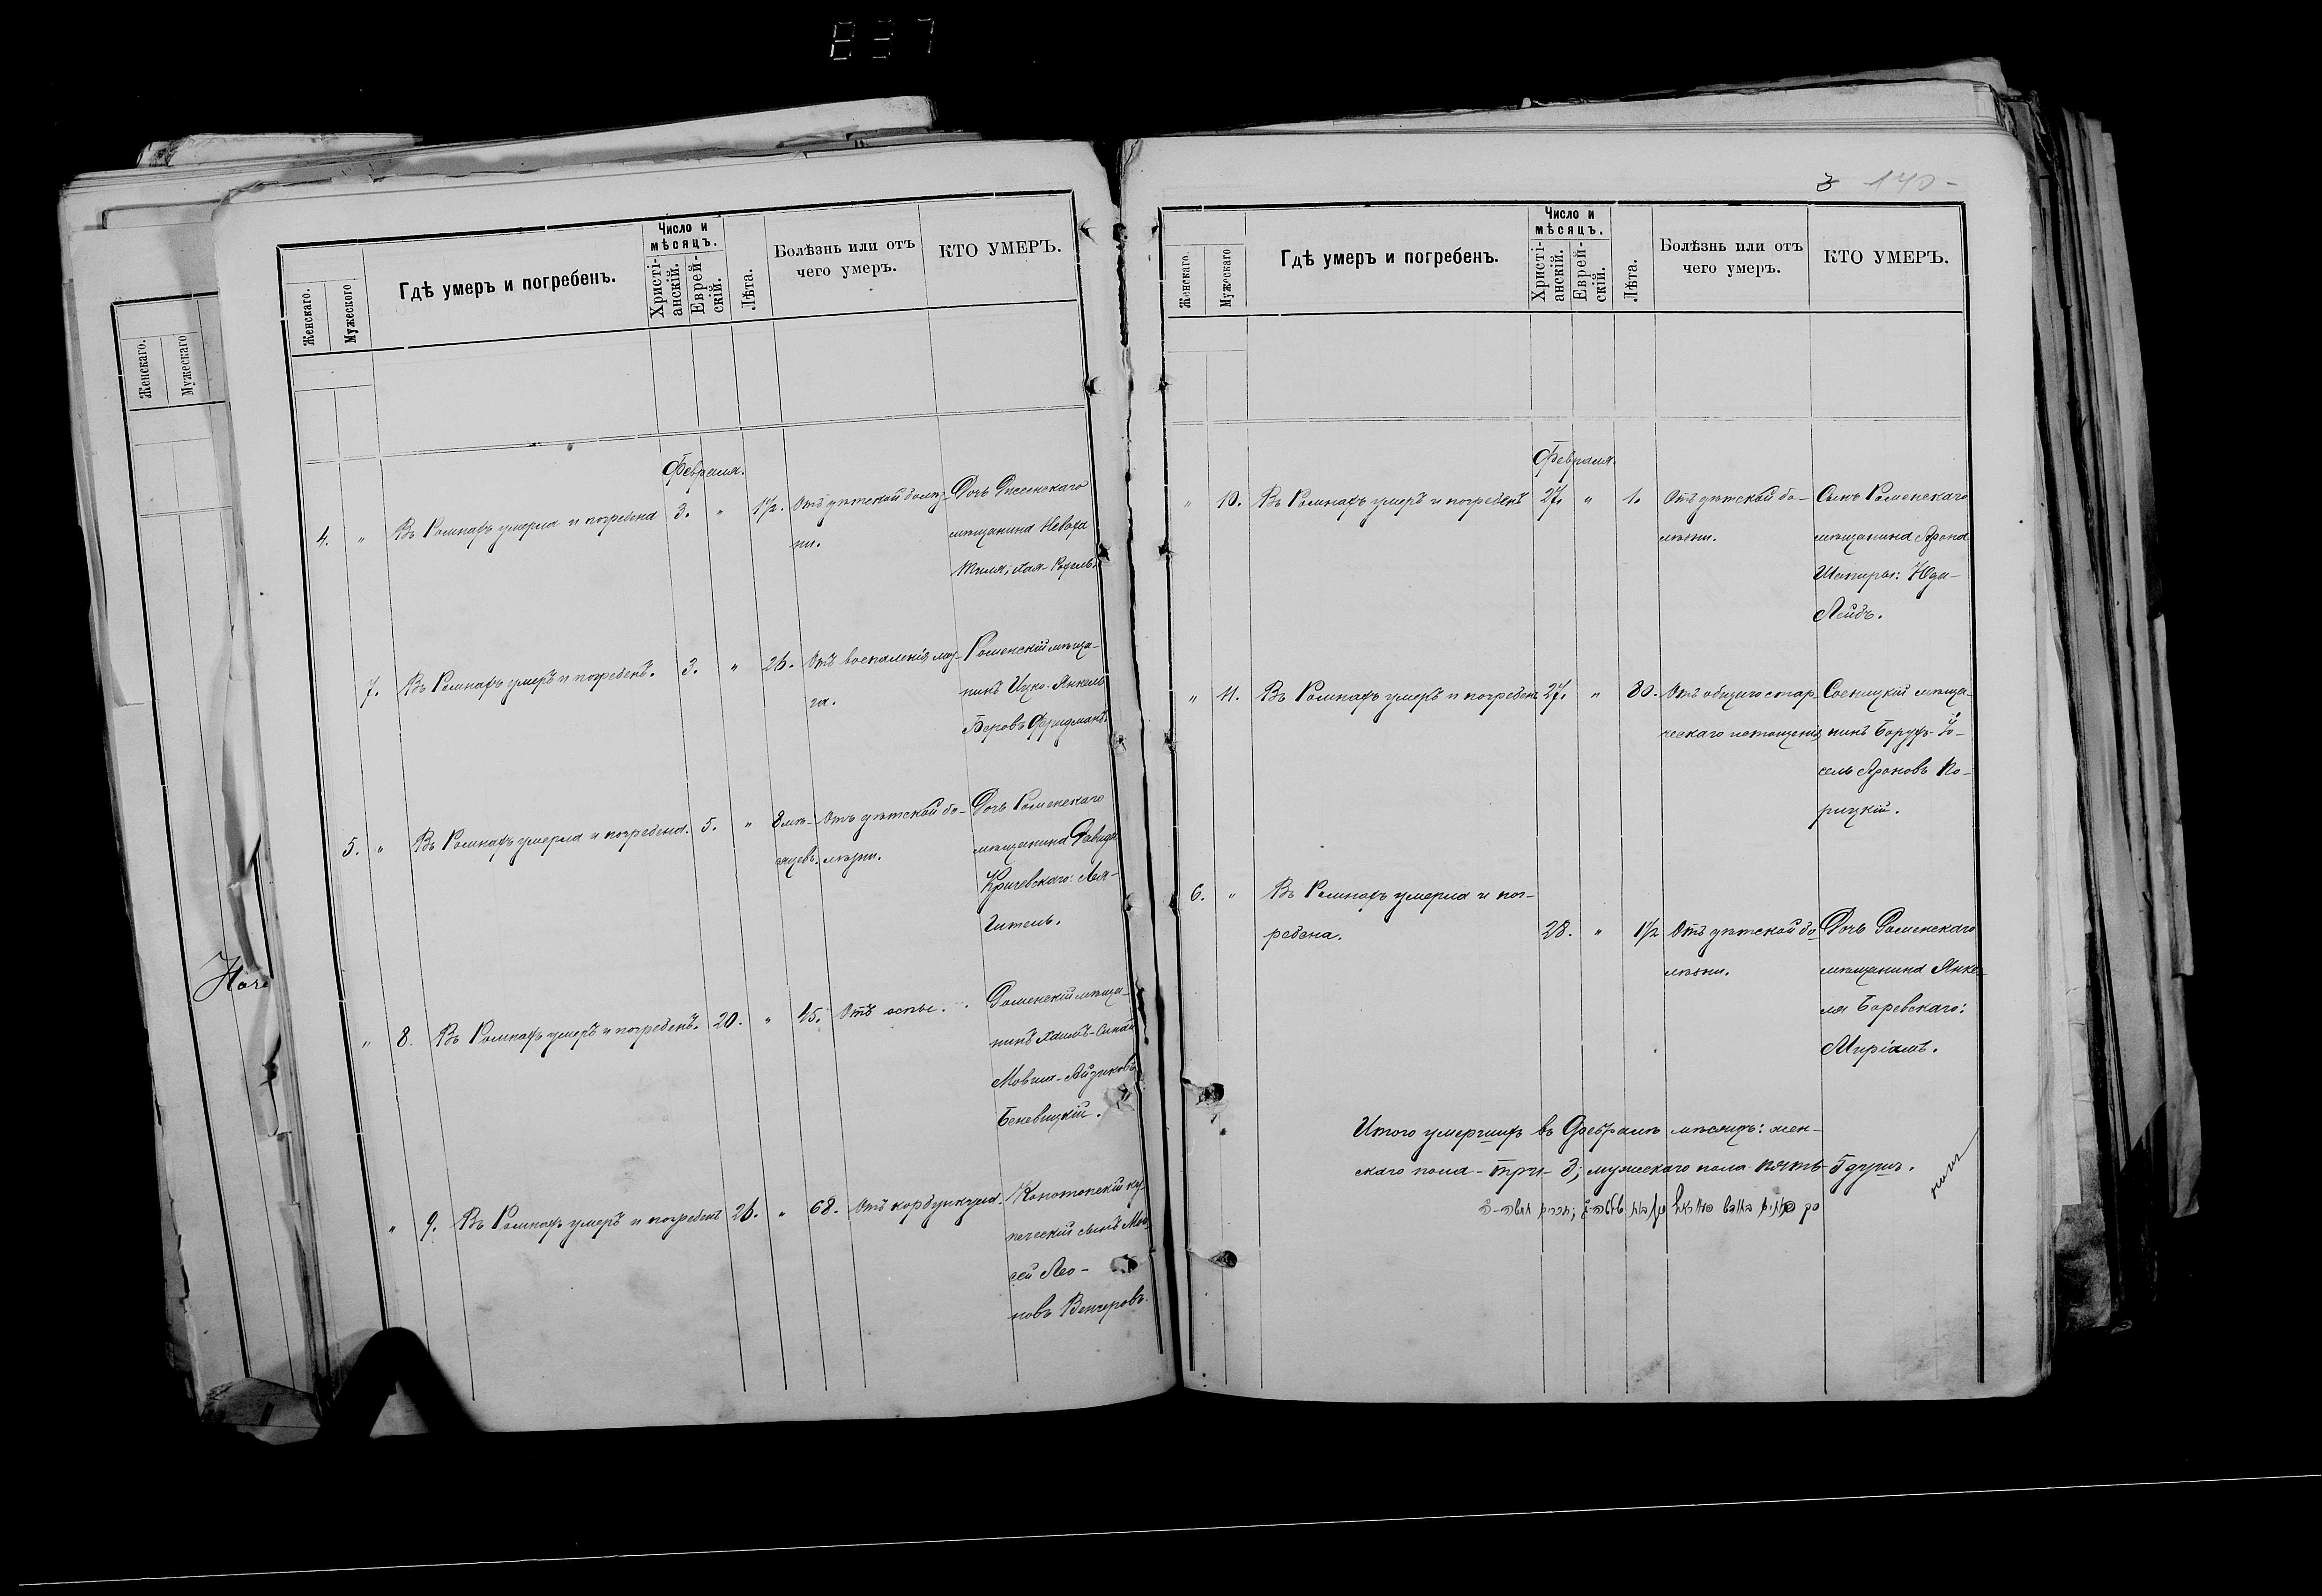 837
Женскаго.
Мужескаго
Женскаго.
Мужескаго
Гдѣ умеръ и погребенъ.
Число и
мѣсяцъ.
Христі-
анскій.
Еврей-
скій.
Лѣта.
Болѣзнь или отъ
чего умеръ.
КТО УМЕРЪ.
Февраля.
4. " Въ Ромнахъ умерла и погребена 3. " 1½. Отъ дѣтской болѣз- Дочь
ни. мѣщанина
7. Въ Ромнахъ умеръ и погребенъ. 3. " 26. Отъ воспаленія моз- Роменскій мѣща-
га. нинъ Ицко-Янкель
Беровъ Фридманъ.
5. " Въ Ромнахъ умерла и погребена. 5. " 8 мѣ- Отъ дѣтской бо- Дочь Роменскаго
сяцевъ. лѣзни. мѣщанина Давида
Кричевскаго: Лея-
Гитель.
" 8. Въ Ромнахъ умеръ и погребенъ. 20. " 45. Отъ оспы. Роменскій мѣща-
нинъ
Мовша-Айзиковъ
Беневицкій.
" 9. Въ Ромнахъ умеръ и погребенъ 26. " 68. Отъ карбункула. Конотопскій ку-
печескій сынъ Мов-
сей
новъ Венгеровъ.
3 170-
Женскаго.
Мужескаго
Гдѣ умеръ и погребенъ.
Число и
мѣсяцъ.
Христі-
анскій.
Еврей-
скій.
Лѣта.
Болѣзнь или отъ
чего умеръ.
КТО УМЕРЪ.
Февраля.
" 10. Въ Ромнахъ умеръ и погребенъ 27. " 1. Отъ дѣтской бо- Сынъ Роменскаго
лѣзни. мѣщанина Арона
Шапиры: Юда-
Лейбъ.
" 11. Въ Ромнахъ умеръ и погребенъ 27. " 80. Отъ общаго стар- Сосницкій мѣща-
ческаго истощенія нинъ Борухъ-Іо-
сель Ароновъ Ко-
рицкій.
6. " Въ Ромнахъ умерла и пог-
ребена. 28. " 1½ Отъ дѣтской бо- Дочь Роменскаго
лѣзни. мѣщанина Янке-
ля Боревскаго:
Миріамъ.
Итого умершихъ въ Февралѣ мѣсяцѣ: жен-
скаго пола - три - 3; мужескаго пола пять 5 душъ.